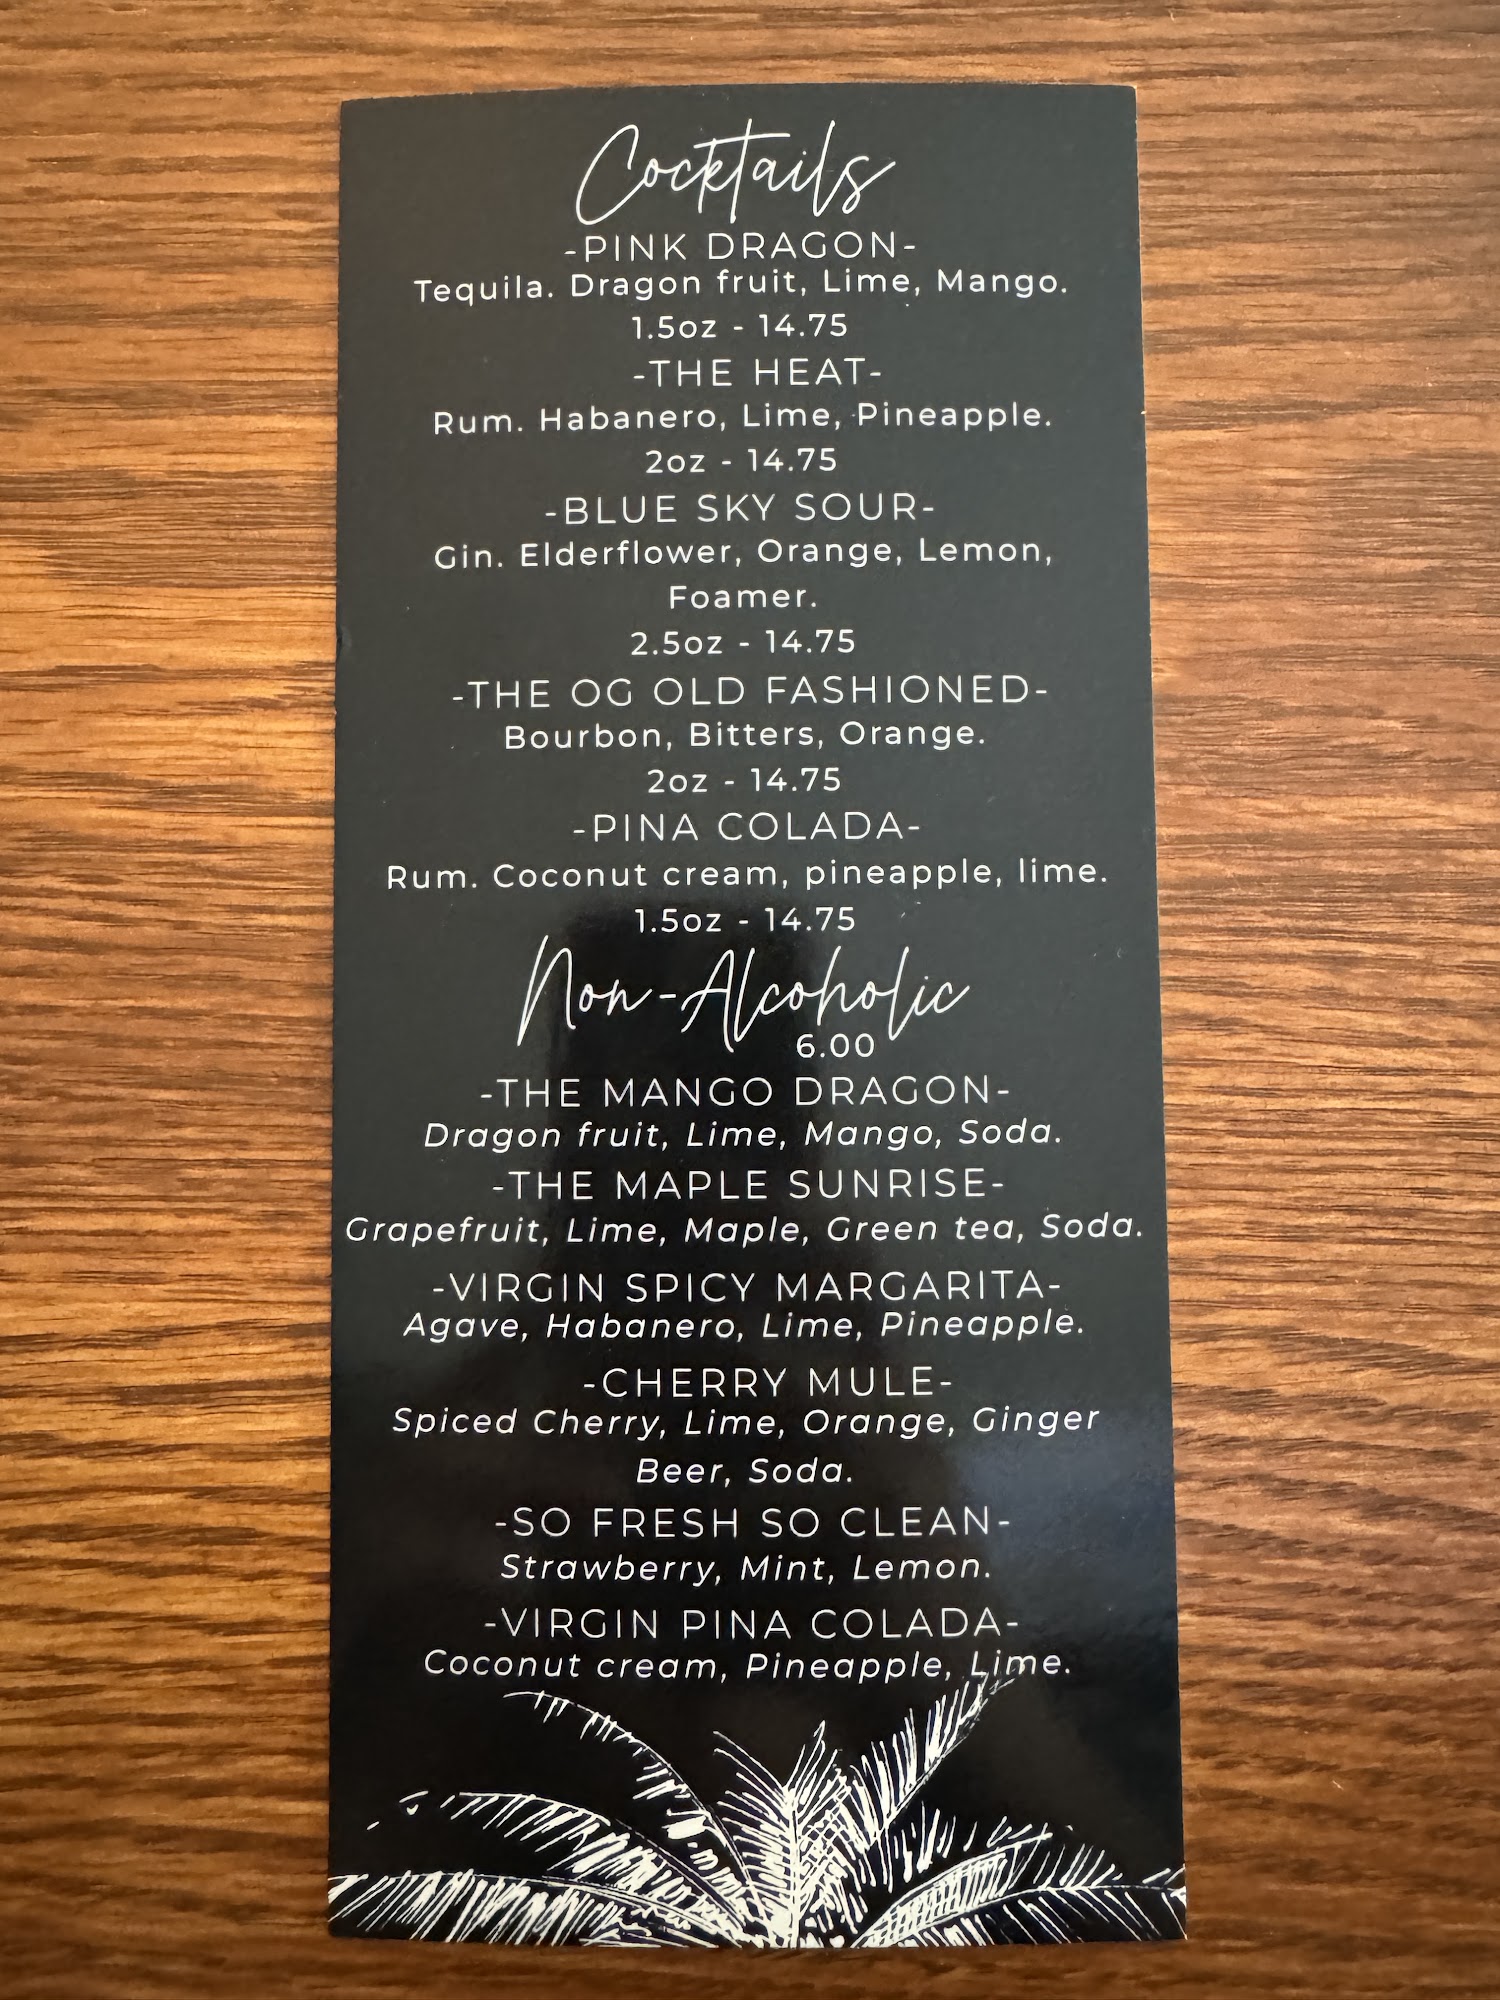 Cocktails
-PINK DRAGON-
Tequila. Dragon fruit, Lime, Mango.
1.5oz - 14.75
-THE HEAT-
Rum. Habanero, Lime, Pineapple.
2oz - 14.75
-BLUE SKY SOUR-
Gin. Elderflower, Orange, Lemon,
Foamer.
2.5oz - 14.75
-THE OG OLD FASHIONED-
Bourbon, Bitters, Orange.
2oz - 14.75
-PINA COLADA-
Rum. Coconut cream, pineapple, lime.
1.5oz - 14.75
Non-Alcoholic
6.00
-THE MANGO DRAGON-
Dragon fruit, Lime, Mango, Soda.
-THE MAPLE SUNRISE-
Grapefruit, Lime, Maple, Green tea, Soda.
-VIRGIN SPICY MARGARITA-
Agave, Habanero, Lime, Pineapple.
-CHERRY MULE-
Spiced Cherry, Lime, Orange, Ginger
Beer, Soda.
-SO FRESH SO CLEAN-
Strawberry, Mint, Lemon.
-VIRGIN PINA COLADA-
Coconut cream, Pineapple, Lime.